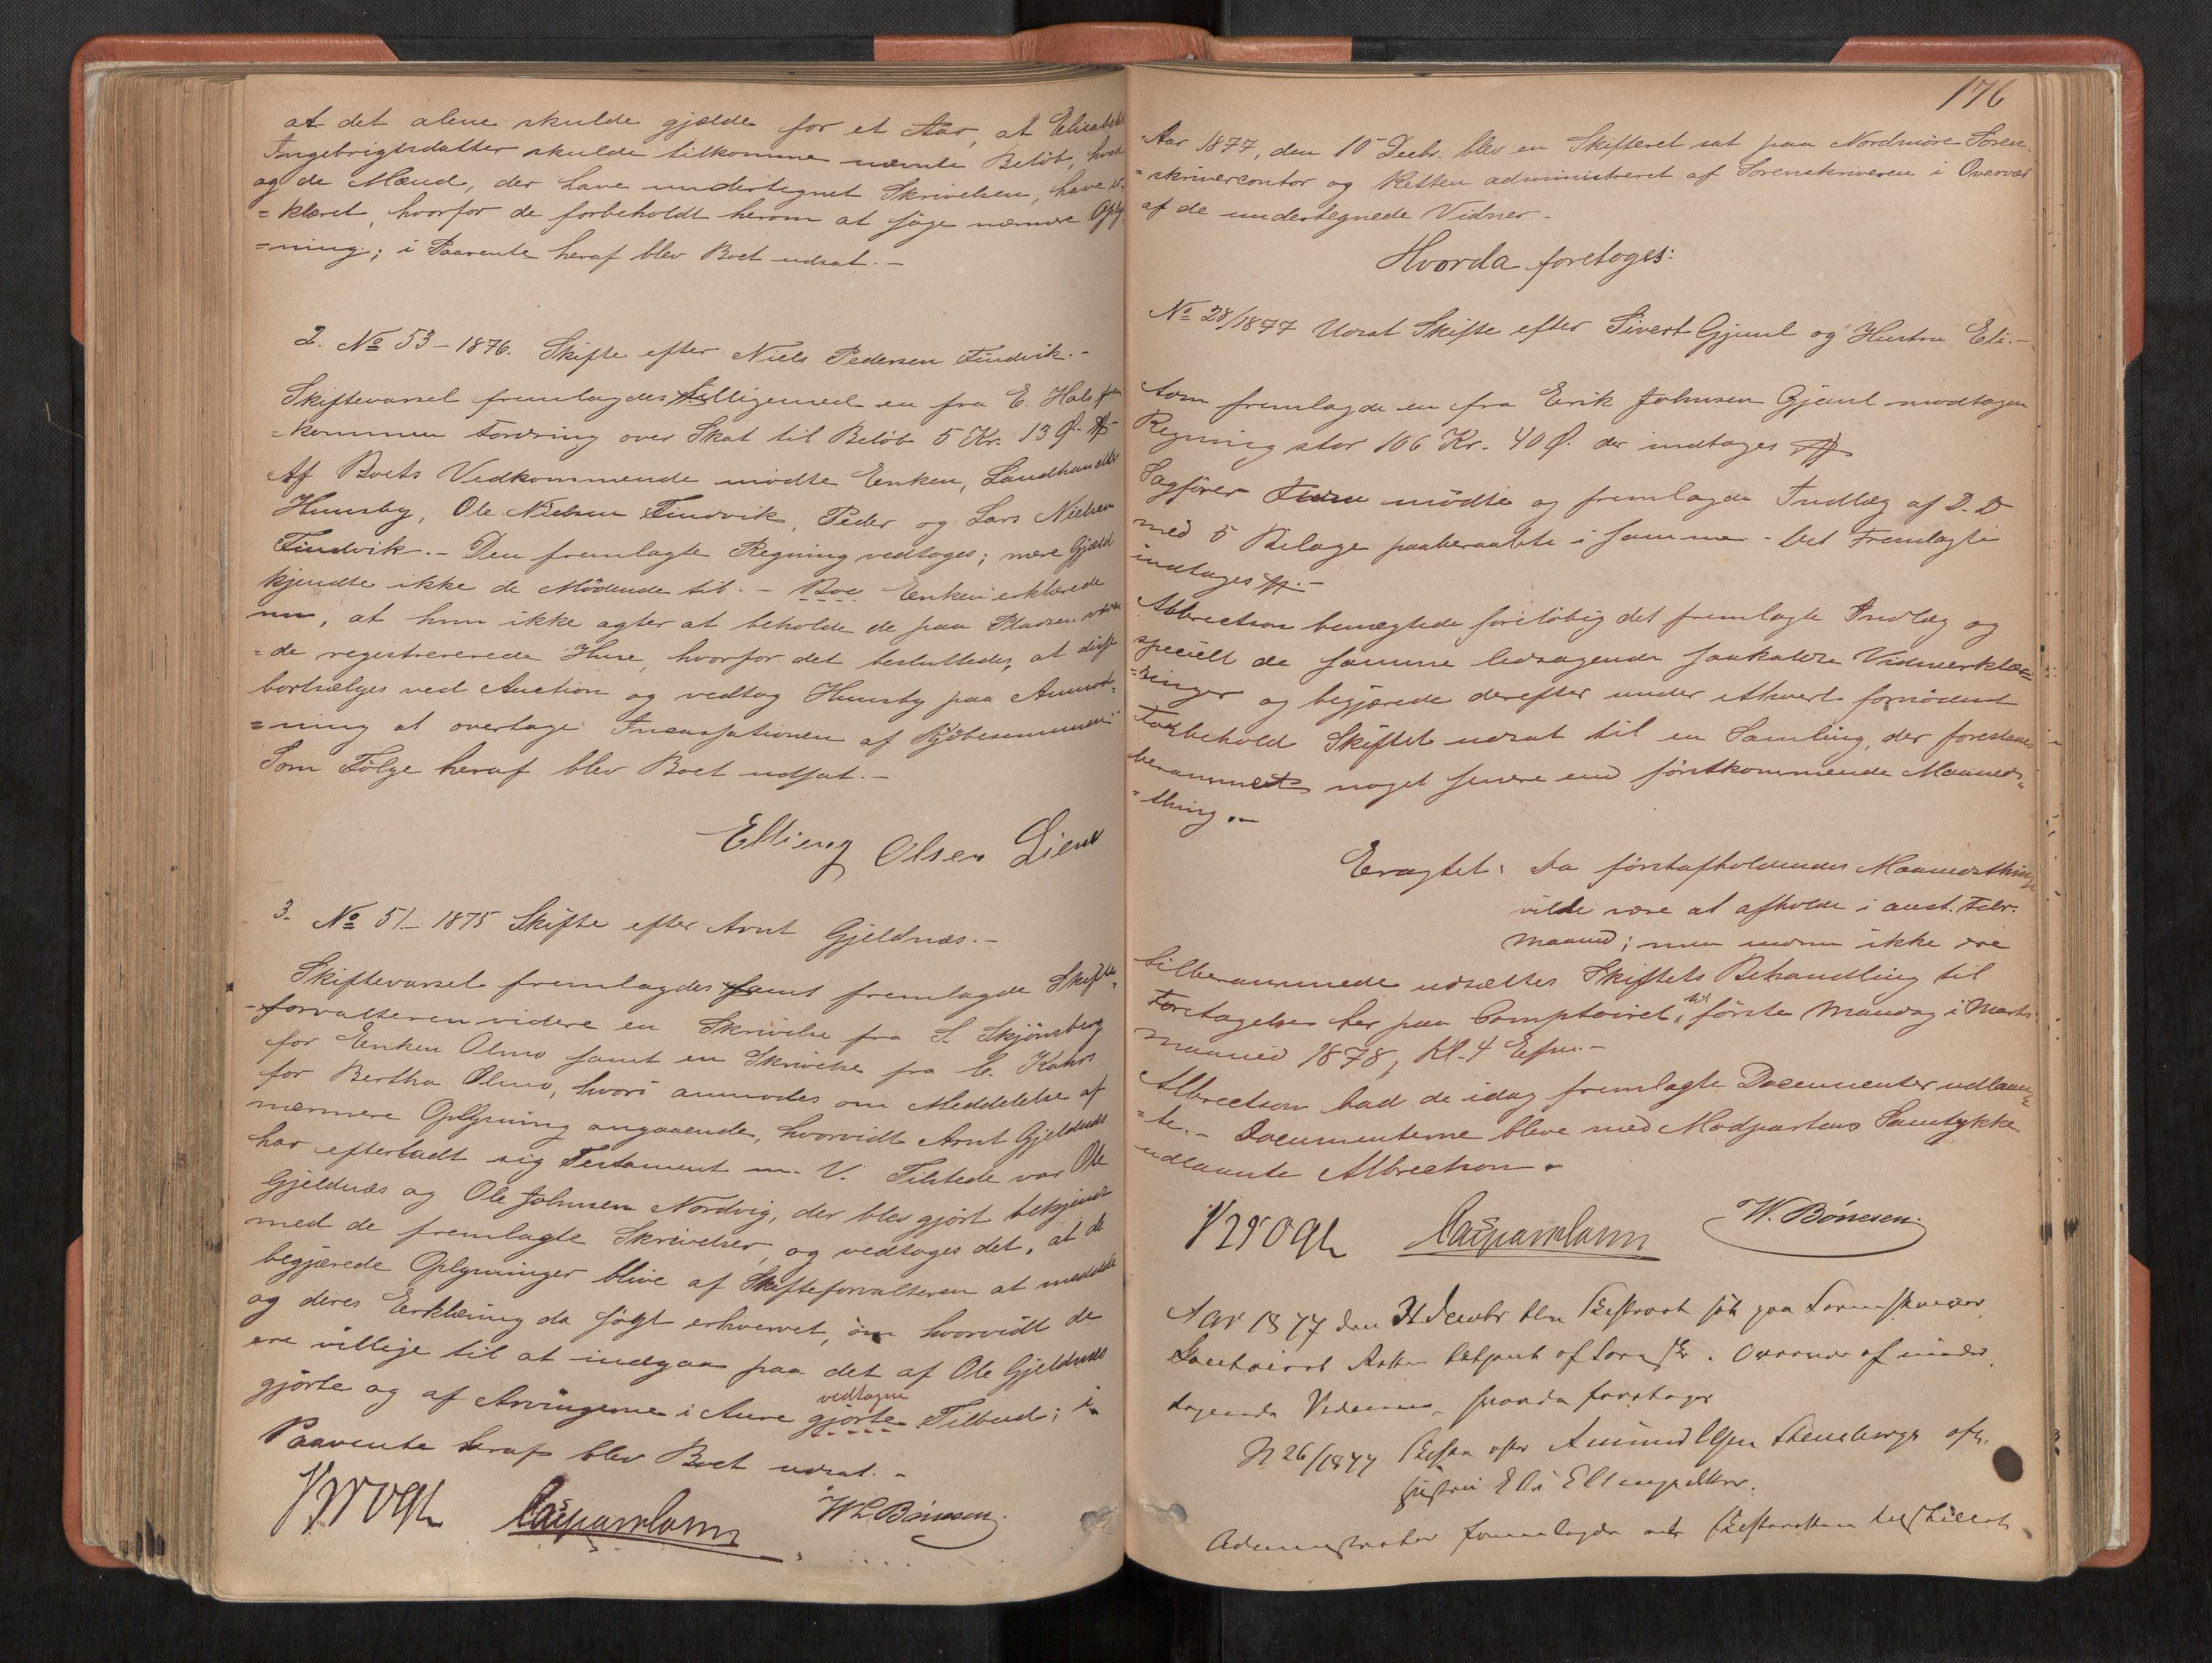 at det alene skulde gjælde for et Aar, at Elisabeth
Ingebrigtsdatter skulde tilkomme nævnte Beløb, hvad
og de Mænd, der have undertegnet Skrivelsen, have er-
=klæret, hvorfor de forbeholdt herom at søge nærmere Oply
=ning; i Paavente heraf blev Boet udsat.-
2. No 53-1876. Skifte efter Niels Pedersen Findvik.-
Skiftevarsel fremlagdes tilligemed en fra E. Hals frem
=kommen Fordring over Skat til Beløb 5 Kr. 13 Ø.
Af Boets Vedkommende mødte Enken, Landhandler
Hunsby, Ole Nielsen Findvik, Peder og Lars Nielsen
Findvik.- Den fremlagte Regning vedtoges; mere Gjæld
kjendte ikke de Mødende til.- Boe Enken erklærede
nu, at hun ikke agter at beholde de paa Pladsen væren
=de registrererede Huse, hvorfor det besluttedes, at disse
bortsælges ved Auction og vedtog Hunsby paa Anmod-
=ning at overtage Incassationen af Kjøbesummen
Som Følge heraf blev Boet udsat.-
Elling Olsen Lien
3. No 51-1875 Skifte efter Arnt Gjeldnæs.-
Skiftevarsel fremlagdes samt fremlagde Skifte-
-forvalteren videre en Skrivelse fra S. Skjønsberg
for Enken Olmo samt en Skrivelse fra C. Kahrs
for Bertha Olmo, hvori anmodes om Meddelelse af
nærmere Oplysning angaaende, hvorvidt Arnt Gjeldnæs
har efterladt sig Testament m. V. Tilstede var Ole
Gjeldnæs og Ole Johnsen Nordvig, der blev gjort bekjendt
med de fremlagte Skrivelser, og vedtoges det, at de
begjærede Oplysninger blive af Skifteforvalteren at meddele
og deres Erklæring da søgt erhvervet, om hvorvidt de
ere villige til at indgaa paa det af Ole Gjeldnæs
gjørte og af Arvingerne i Aure gjørte vedtagne Tilbud; i
Paavente heraf blev Boet udsat.-
Vogt Caspar Lom W. Bønesen
176
Aar 1877, den 10 Decbr. blev en Skifteret sat paa Nordmøre Soren-
=skrivercontor og Retten administreret af Sorenskriveren i Overvær
af de undertegnede Vidner.-
Hvorda foretoges:
No 28/1877 Udsat Skifte efter Sivert Gjeml og Hustru Eli.-
som fremlagde en fra Erik Johnsen Gjeml modtagen
Regning stor 106 Kr. 40 Ø. der indtages
Sagfører mødte og fremlagde Indlæg af D. D
med 5 Bilage paaberaabte i samme. Det Fremlagte
indtages.-
Albrectson benægtede foreløbig det fremlagte Indlæg og
specielt de samme ledsagende saakaldte Vidneerklæ=
=ringer og begjærede derefter under ethvert fornødent
Forbehold Skiftet udsat til en Samling, der forestaaes
berammet noget senere end førstkommende Maaneds-
=thing.-
Eragtet: Da førstafholdendes Maanedsthing
vilde være at afholde i anst. Febr.
maaned; men endnu ikke ere
tilberammede udsættes Skiftets Behandling til
Foretagelse her paa Comptoiret, til første Mandag i Marts
maaned 1878, Kl. 4 Efm.-
Albrectson bad de idag fremlagte Documenter udlaan=
=te.- Documenterne bleve med Modpartens Samtykke
udlaante Albrectson.
Vogt Caspar Lom W. Bønesen
Aar 1877 den 31 Decebr blev Skifteret sat paa Sorenskriver
Contoiret Retten betjent af Sorensk. i Overvær af under
tegnede Vidner, hvorda foretoges
N 26/1877 Skifte efter Amund Olsen
hustru Eli Ellingsdatter.
Administrator fremlagde